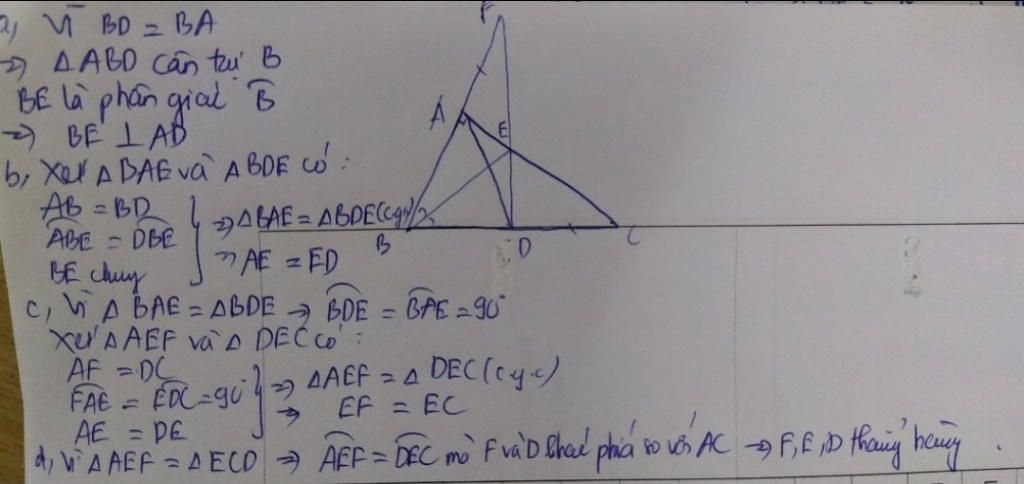 a, Vì BD = BA
=> Δ ABD cân tại B
BE là phân giác B̂
=> BE ⊥ AD
b, Xét Δ BAE và Δ BDE có:
AB = BD
ABE = DBE
BE chung
=> Δ BAE = Δ BDE (cgc)
=> AE = ED
c, Vì Δ BAE = Δ BDE => BDE = BAE = 90°
Xét Δ AEF và Δ DEC có:
AF = DC
FAE = EDC = 90°
AE = DE
=> Δ AEF = Δ DEC (c.g.c)
=> EF = EC
d, Vì Δ AEF = Δ ECD => AEF = DEC mà F và D khác phía so với AC => F, E, D thẳng hàng.
F
A
E
B
D
C